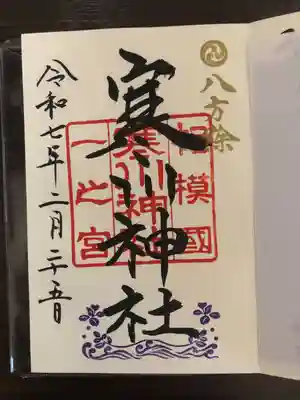 八方除
相模國
寒川神社
一之宮
寒川神社
令和七年二月二十五日